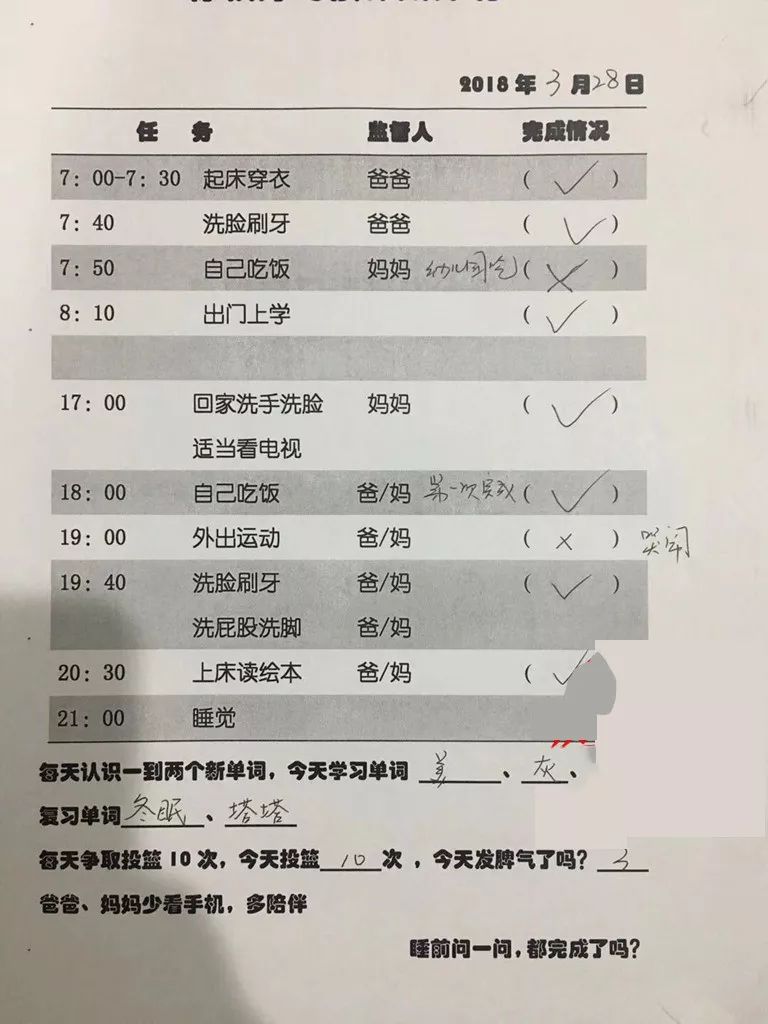 2018 年 3 月 28 日
任 务 监督人 完成情况
7: 00-7: 30 起床穿衣 爸爸 ( ✓ )
7: 40 洗脸刷牙 爸爸 ( ✓ )
7: 50 自己吃饭 妈妈 幼儿园吃 ( × )
8: 10 出门上学 ( ✓ )
17: 00 回家洗手洗脸 妈妈 ( ✓ )
适当看电视
18: 00 自己吃饭 爸/妈 第一次完成 ( ✓ )
19: 00 外出运动 爸/妈 ( × ) 哭闹
19: 40 洗脸刷牙 爸/妈 ( ✓ )
洗屁股洗脚 爸/妈
20: 30 上床读绘本 爸/妈 ( ✓
21: 00 睡觉
每天认识一到两个新单词，今天学习单词 美 、 灰 、
复习单词 冬眠 、 塔塔
每天争取投篮 10 次，今天投篮 10 次 ，今天发脾气了吗？ 3
爸爸、妈妈少看手机，多陪伴
睡前问一问，都完成了吗？